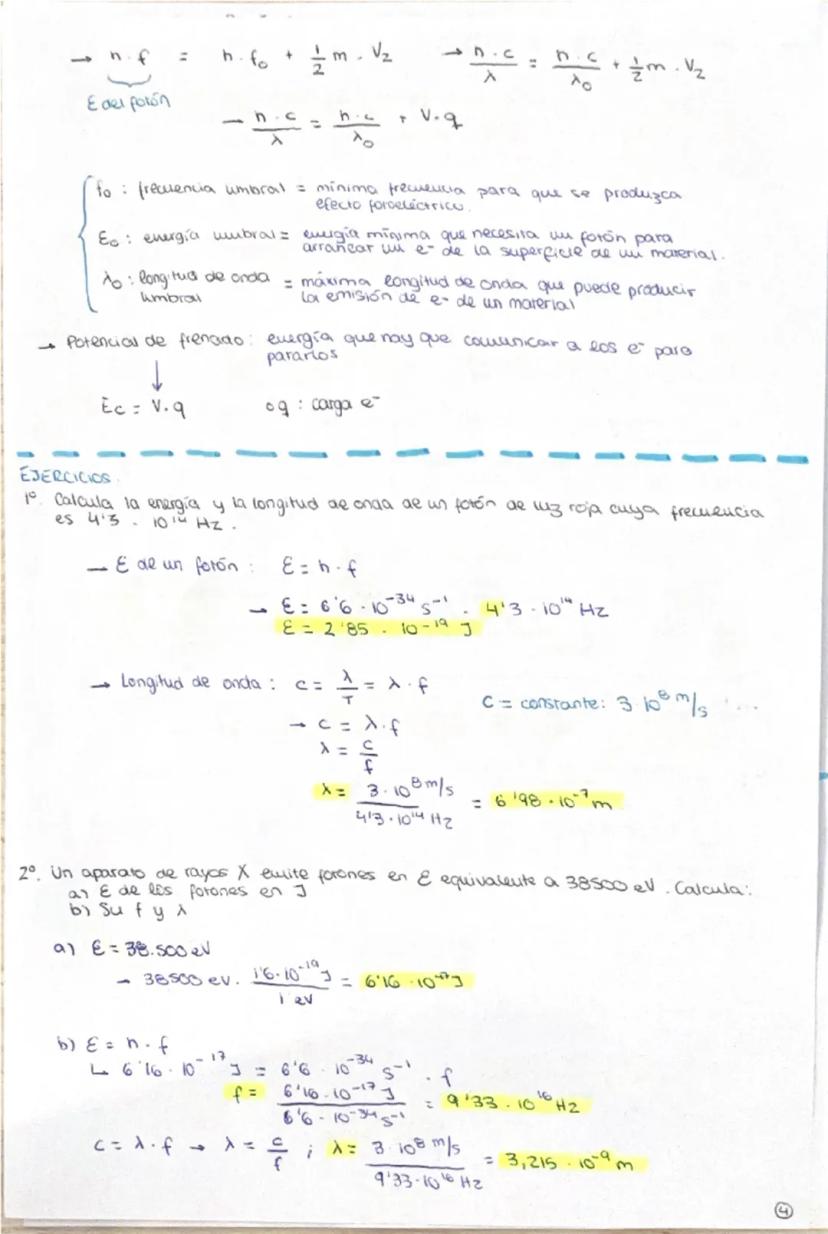 → h · f = h · f₀ + 1/2 m · V2 → h · c / λ = h · c / λ₀ + 1/2 m · V2
E del fotón
→ h · c / λ = h · c / λ₀ + V · q
f₀ : frecuencia umbral = mínima frecuencia para que se produzca
efecto fotoeléctrico.
E₀ : energía umbral = energía mínima que necesita un fotón para
arrancar un e⁻ de la superficie de un material.
λ₀ : longitud de onda = máxima longitud de onda que puede producir
umbral la emisión de e⁻ de un material
→ Potencial de frenado : energía que hay que comunicar a los e⁻ para
pararlos
↓
Ec = V · q o q : carga e⁻
EJERCICIOS.
1º. Calcula la energía y la longitud de onda de un fotón de luz roja cuya frecuencia
es 4'3 · 10¹⁴ Hz .
→ E de un fotón : E = h · f
→ E = 6'6 · 10⁻³⁴ s⁻¹ · 4'3 · 10¹⁴ Hz
E = 2'85 · 10⁻¹⁹ J
→ Longitud de onda : c = λ / T = λ · f
c = constante: 3·10⁸ m/s
→ c = λ · f
λ = c / f
λ = 3 · 10⁸ m/s / 4'3 · 10¹⁴ Hz = 6'98 · 10⁻⁷ m
2º. Un aparato de rayos X emite fotones en E equivalente a 38500 eV . Calcula:
a) E de los fotones en J
b) Su f y λ
a) E = 38.500 eV
→ 38500 eV · 1'6 · 10⁻¹⁹ J / 1 eV = 6'16 · 10⁻¹⁷ J
b) E = h · f
↳ 6'16 · 10⁻¹⁷ J = 6'6 · 10⁻³⁴ s⁻¹ · f
f = 6'16 · 10⁻¹⁷ J / 6'6 · 10⁻³⁴ s⁻¹ = 9'33 · 10¹⁶ Hz
c = λ · f → λ = c / f ; λ = 3 · 10⁸ m/s / 9'33 · 10¹⁶ Hz = 3,215 · 10⁻⁹ m
4